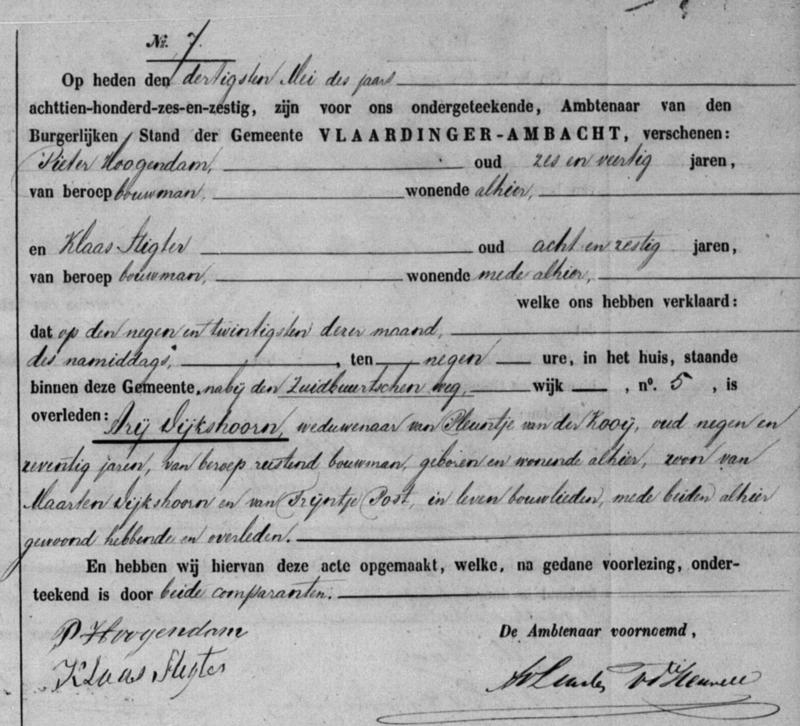 No. 7.
Op heden den dertigsten Mei des jaars
achttien-honderd-zes-en-zestig, zijn voor ons ondergeteekende, Ambtenaar van den
Burgerlijken Stand der Gemeente VLAARDINGER-AMBACHT, verschenen:
Pieter Hoogendam, oud zes en veertig jaren,
van beroep bouwman, wonende alhier,
en Klaas Stigter oud acht en zestig jaren,
van beroep bouwman, wonende mede alhier,
welke ons hebben verklaard:
dat op den negen en twintigsten dezer maand,
des namiddags, ten negen ure, in het huis, staande
binnen deze Gemeente, nabij den Zuidbuurtschen weg, wijk , no. 5, is
overleden: Arij Dijkshoorn, weduwenaar van Pleuntje van der Kooij, oud negen en
zeventig jaren, van beroep rustend bouwman, geboren en wonende alhier, zoon van
Maarten Dijkshoorn en van Trijntje Post, in leven bouwlieden, mede beiden alhier
gewoond hebbende en overleden.
En hebben wij hiervan deze acte opgemaakt, welke, na gedane voorlezing, onder-
teekend is door beide comparanten.
P Hoogendam
De Ambtenaar voornoemd,
Klaas Stigter